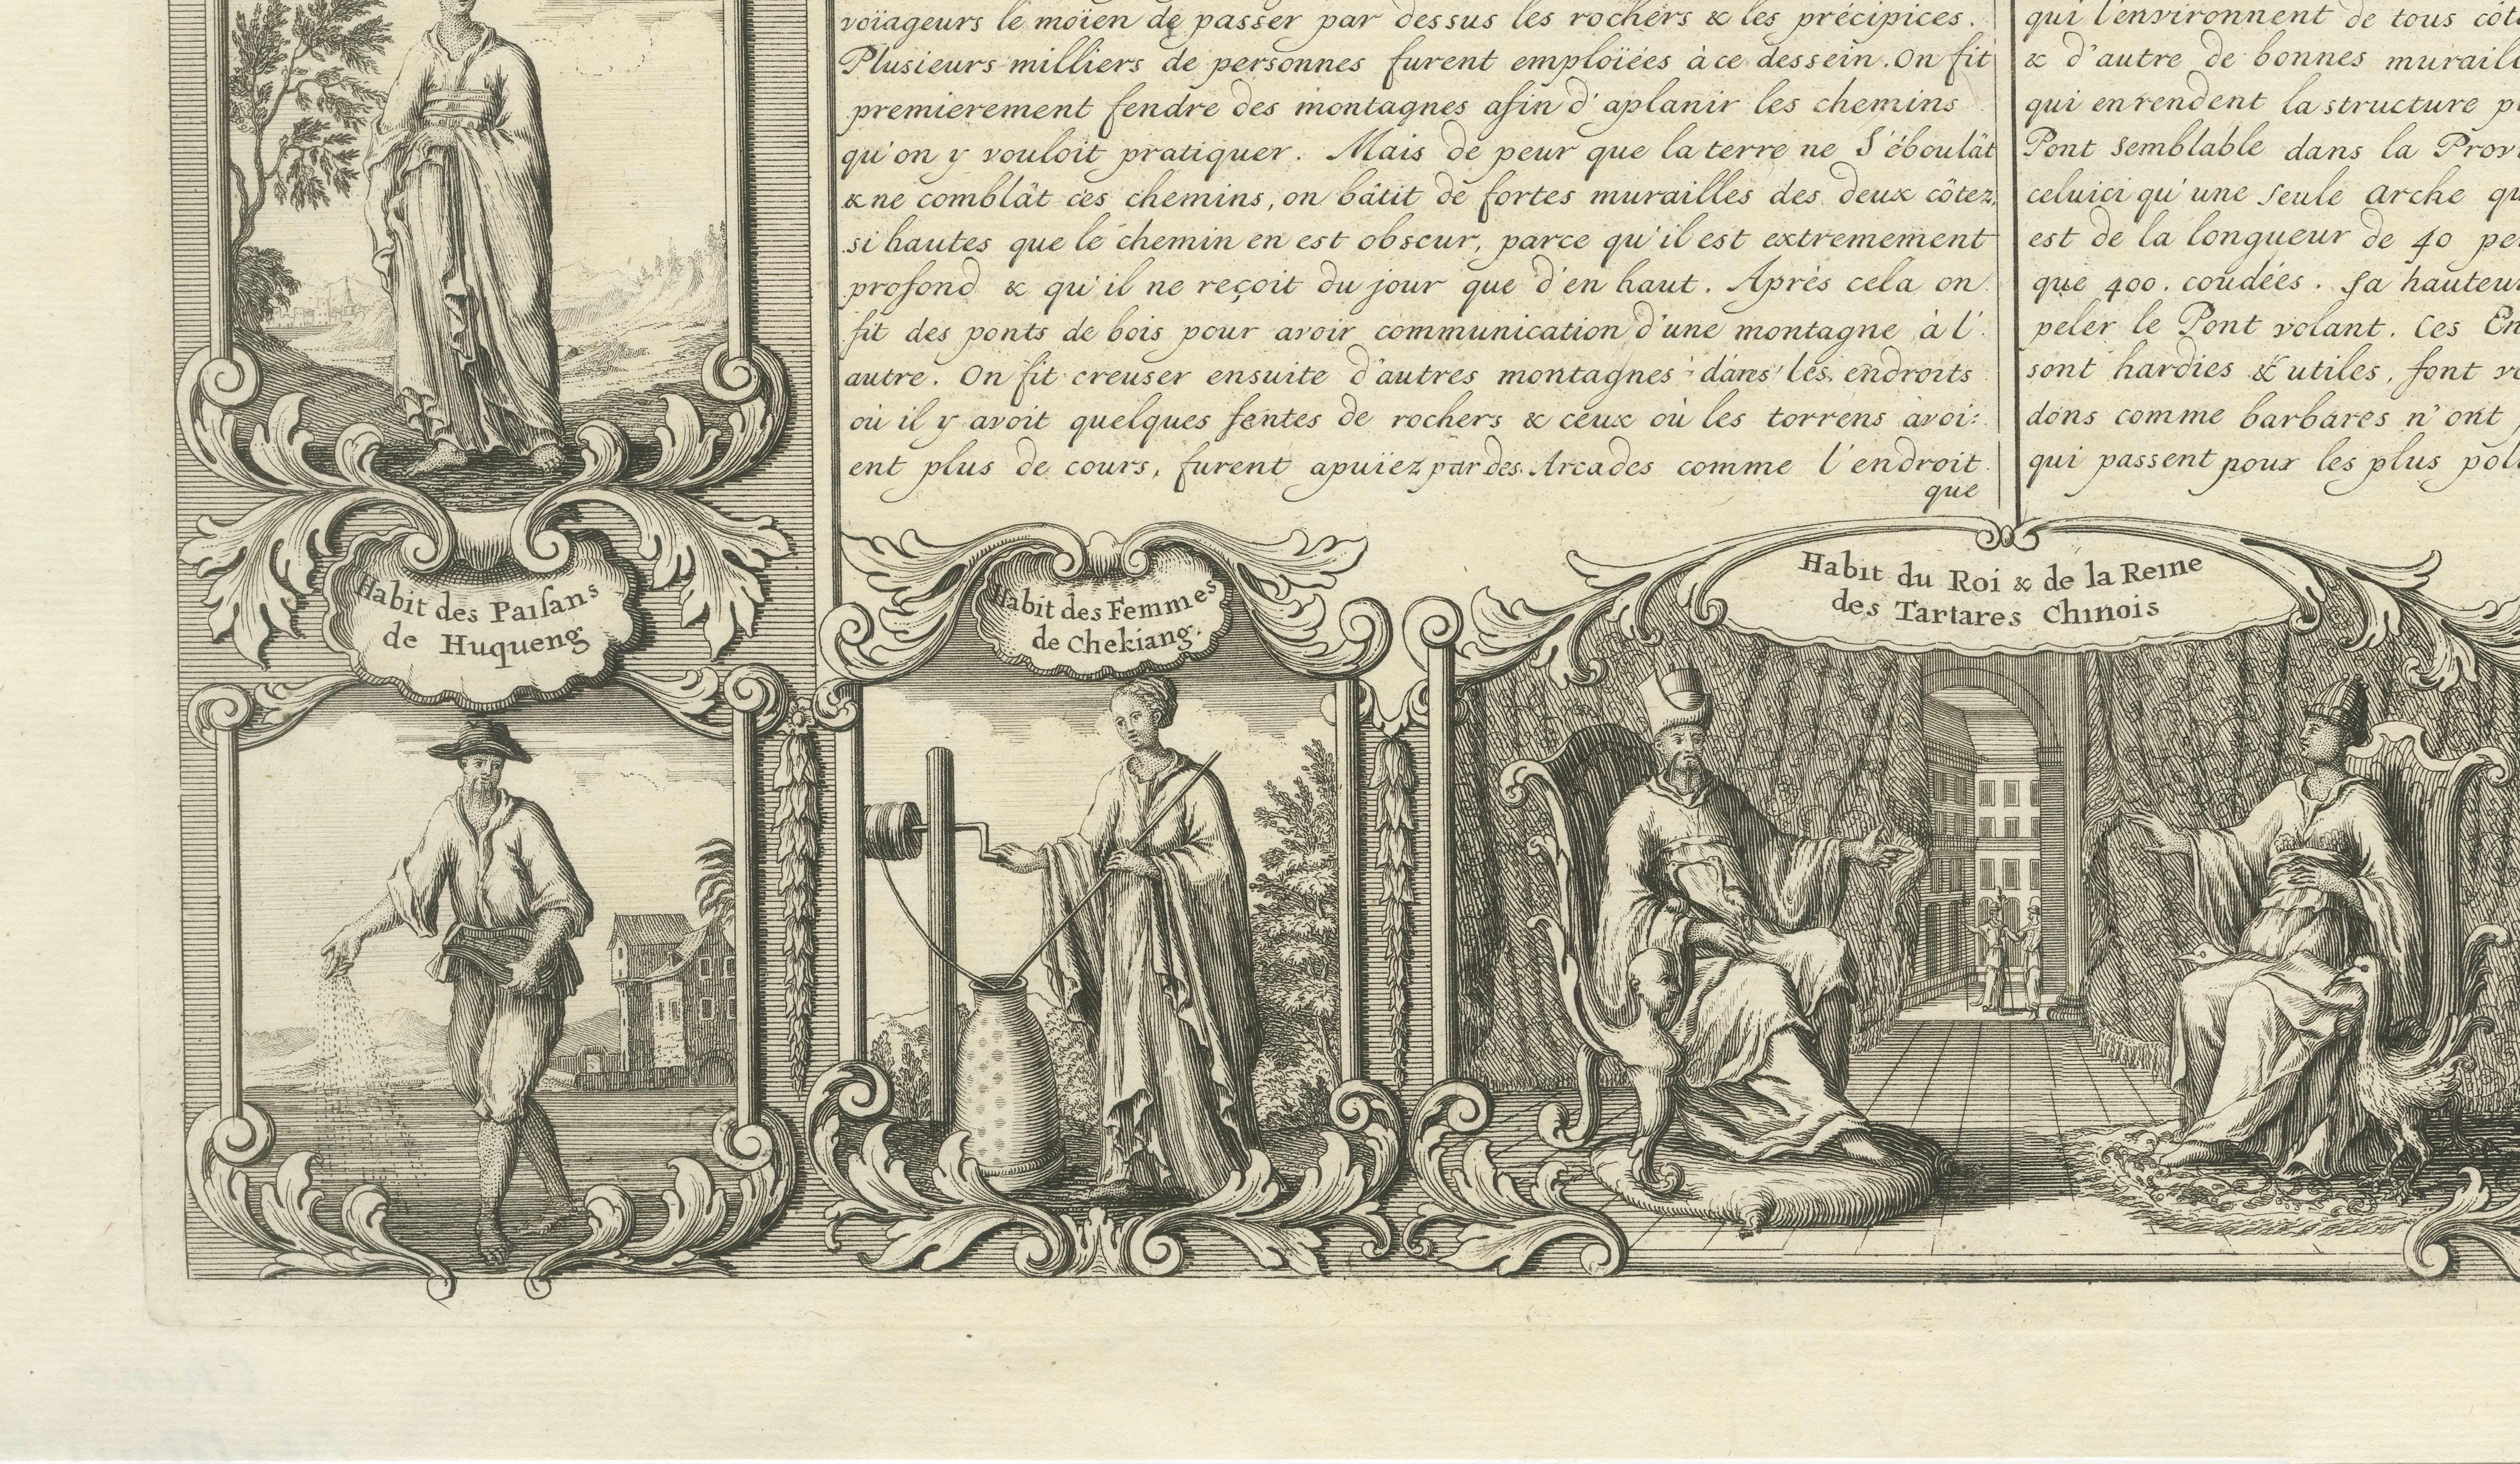 voïageurs le moïen de passer par dessus les rochers & les précipices.
Plusieurs milliers de personnes furent emploïées à ce dessein. On fit
premierement fendre des montagnes afin d'aplanir les chemins
qu'on y vouloit pratiquer. Mais de peur que la terre ne S'éboulât
& ne comblât ces chemins, on bâtit de fortes murailles des deux côtez,
si hautes que le chemin en est obscur, parce qu'il est extremement
profond & qu'il ne reçoit du jour que d'en haut. Après cela on
fit des ponts de bois pour avoir communication d'une montagne à l'
autre. On fit creuser ensuite d'autres montagnes dans les endroits
où il y avoit quelques fentes de rochers & ceux où les torrens avoi:
ent plus de cours, furent apuïez par des Arcades comme l'endroit
que
qui l'environnent de tous côt
& d'autre de bonnes murail
qui en rendent la structure p
Pont semblable dans la Prov
celuici qu'une seule arche qu
est de la longueur de 40 pe
que 400. coudées. Sa hauteur
peler le Pont volant. Ces En
sont hardies & utiles, font v
dons comme barbares n'ont
qui passent pour les plus pol
Habit des Paisans
de Huqueng
Habit des Femmes
de Chekiang.
Habit du Roi & de la Reine
des Tartares Chinois